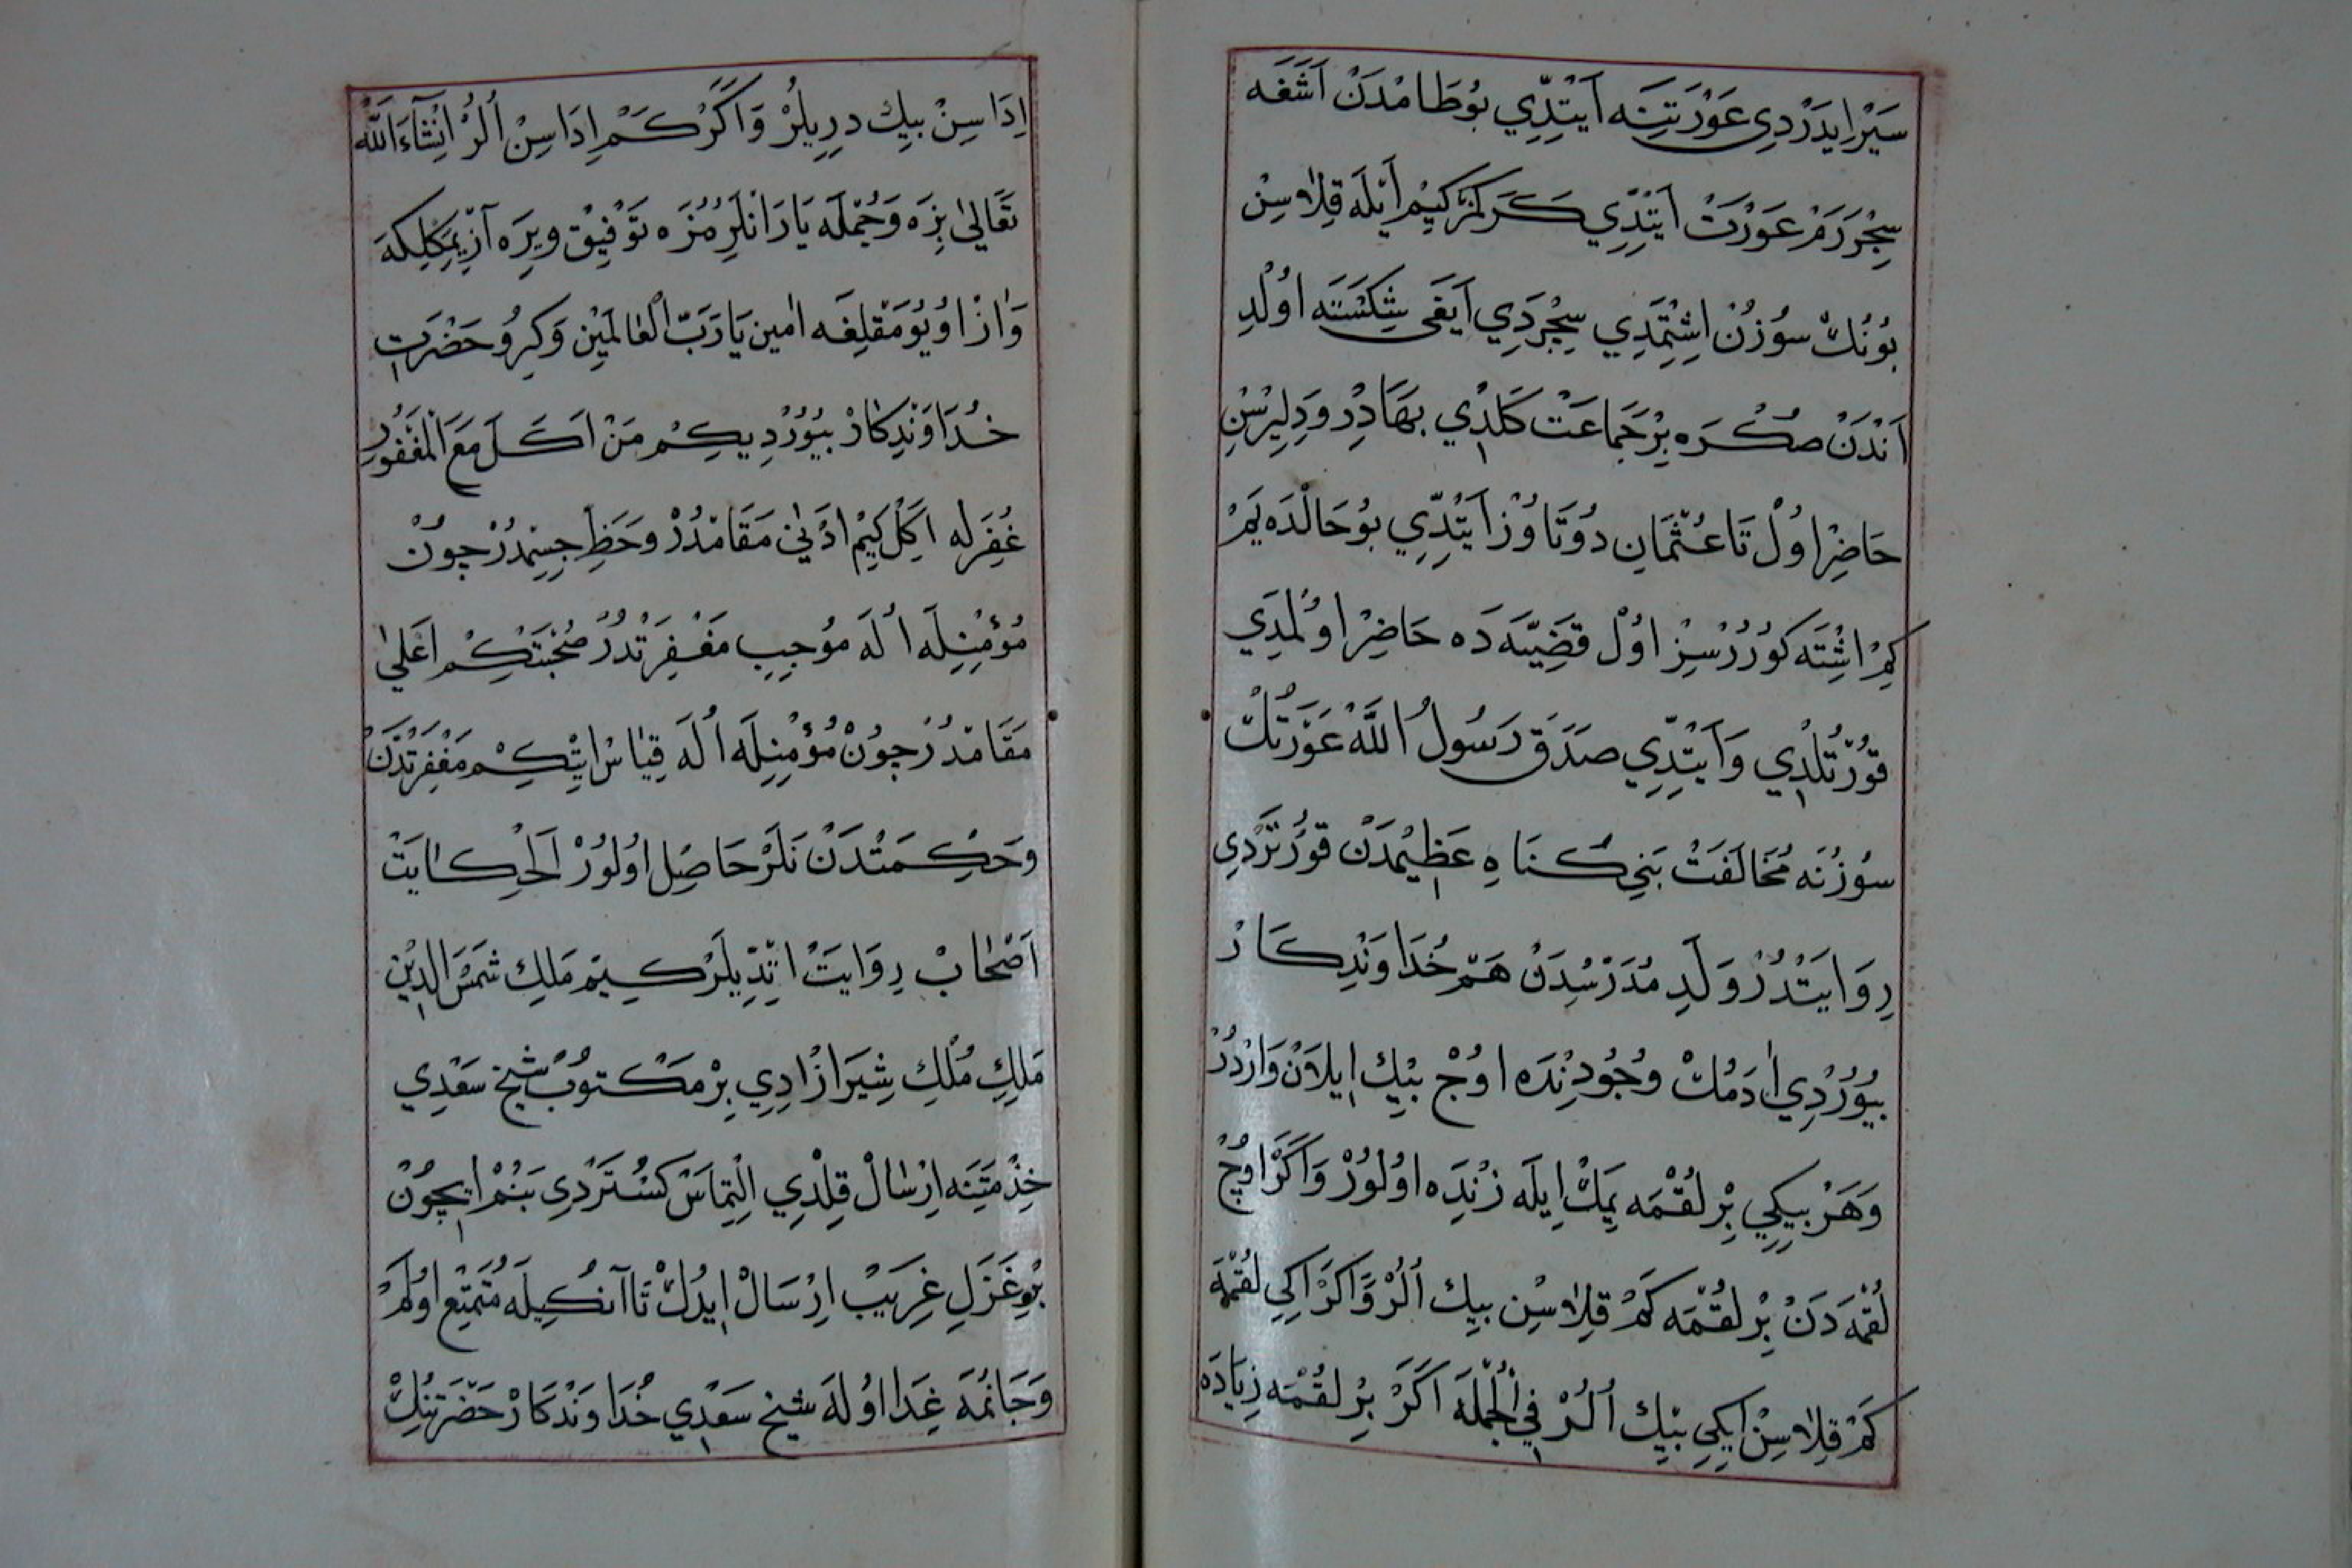 سَيْرْ ايدَرْدِى عَوْرَتِنَه اَيْتِدِّي بُو طَامْدَنْ اَشَغَه
سِچْرَرَمْ عَوْرَتْ اَيْتِدِّي كَرَكْمَزْ كِيمْ اَيْلَه قِلَاسِنْ
بُونُكْ سُوزُنْ اِشِتْمَدِي سِچْرَدِي اَيَغَى شِكَسْتَه اُولْدِ
اَنْدَنْ صُكْرَه بِرْ جَمَاعَتْ كَلْدِي بَهَادِرْ وَدِلِيرْسِنْ
حَاضِرْ اوُلْ تَا عُثْمَانِ دُوتَاوُزْ اَيْتِدِّي بُو حَالْدَه يَمْ
كِمْ اشْتَه كُورُرْسِزْ اوُلْ قَضِيَّه دَه حَاضِرْ اوُلْمَدِي
قُورْتُلْدِي وَاَيْتِدِّي صَدَقَ رَسُولُ اللّٰهْ عَوْرَتُكْ
سُوزُنَه مُخَالَفَتْ بَنِي كُنَاهِ عَظِيمْدَنْ قُورْتَرْدِي
رِوَايَتْدُرْ وَلَدِ مُدَرْسُدِنْ هَمْ خُدَاوَنْدِكَارْ
بُيُورْدِي اٰدَمُكْ وُجُودِنْدَه اوُچْ بِيكْ اِيلَانْ وَارْدُرْ
وَهَرْ بِيكِي بِرْ لُقْمَه يَمَكْ اِيلَه زِنْدَه اوُلُورْ وَاَكَرْ اوُچْ
لُقْمَه دَنْ بِرْ لُقْمَه كَمْ قِلَاسِنْ بِيكْ اُلُرْ وَاَكَرْ اِكِي لُقْمَه
كَمْ قِلَاسِنْ اِيكِي بِيكْ اُلُرْ فِي الْجُمْلَه اَكَرْ بِرْ لُقْمَه زِيَادَه
اِدَاسِنْ بِيكْ دِرِيلُرْ وَاَكَرْ كَمْ اِدَاسِنْ اُلُرْ اِنْشَآءَ اللّٰهْ
تَعَالىٰ بِزَه وَجُمْلَه يَارَانْلَرِمُزَه تَوْفِيقْ وِيرَه آزْ يِمَكْلِكَه
وَازْ اوُيُومَقْلِغَه اٰمِين يَا رَبَّ الْعَالَمِيْن وَكِرُو حَضْرَتِ
خُدَاوَنْدِكَارْ بُيُورْدِيكِمْ مَنْ اَكَلَ مَعَ الْمَغْفُورِ
غُفِرَلَه اَكِلْ كِيمْ اَدْنىٰ مَقَامْدُرْ وَحَظِّ جِسِمْدُرْ چُونْ
مُؤْمِنِلَه اُلَه مُوجِبِ مَغْفِرَتْدُرْ صُحْبَتْكِمْ اَعْلىٰ
مَقَامْدُرْ چُونْ مُؤْمِنِلَه اُلَه قِيَاسْ ايْتِكِمْ مَغْفِرَتْدَنْ
وَحِكْمَتْدَنْ نَلَرْ حَاصِلْ اوُلُورْ اَلْحِكَايَتْ
اَصْحَابْ رِوَايَتْ اِتْدِيلَرْ كِيمْ مَلِكْ شَمْسُ الدِّيْن
مَلِكِ مُلْكِ شِيرَازْ ادِي بِرْ مَكْتُوبْ شَيْخِ سَعْدِي
خِذْمَتِنَه اِرْسَالْ قِلْدِي اِلْتِمَاسْ كُسْتَرْدِى بَنُمْ ايچُونْ
بِرْ غَزَلِ غَرِيبْ اِرْسَالْ ايدُكْ تَا آنُكِيلَه مُتَمَتِّعْ اوُلَمْ
وَجَانُمَه غِدَا اوُلَه شَيْخِ سَعْدِي خُدَاوَنْدَكَارْ حَضْرَتِنُكْ